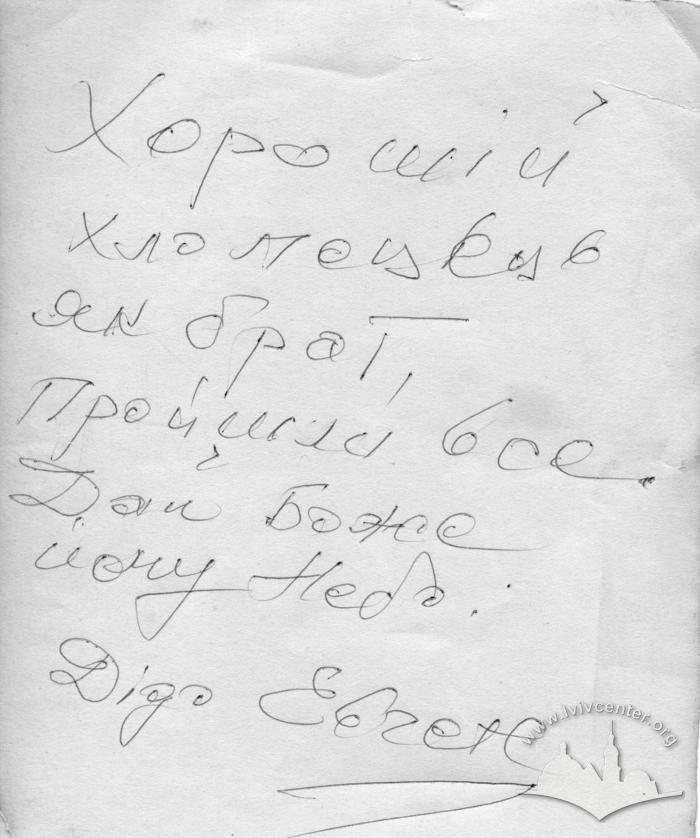 Хорошій
хлопець був
як брат,
Пройшли все.
Дай Боже
йому Небо.
Дідо Евген
www.lvivcenter.org